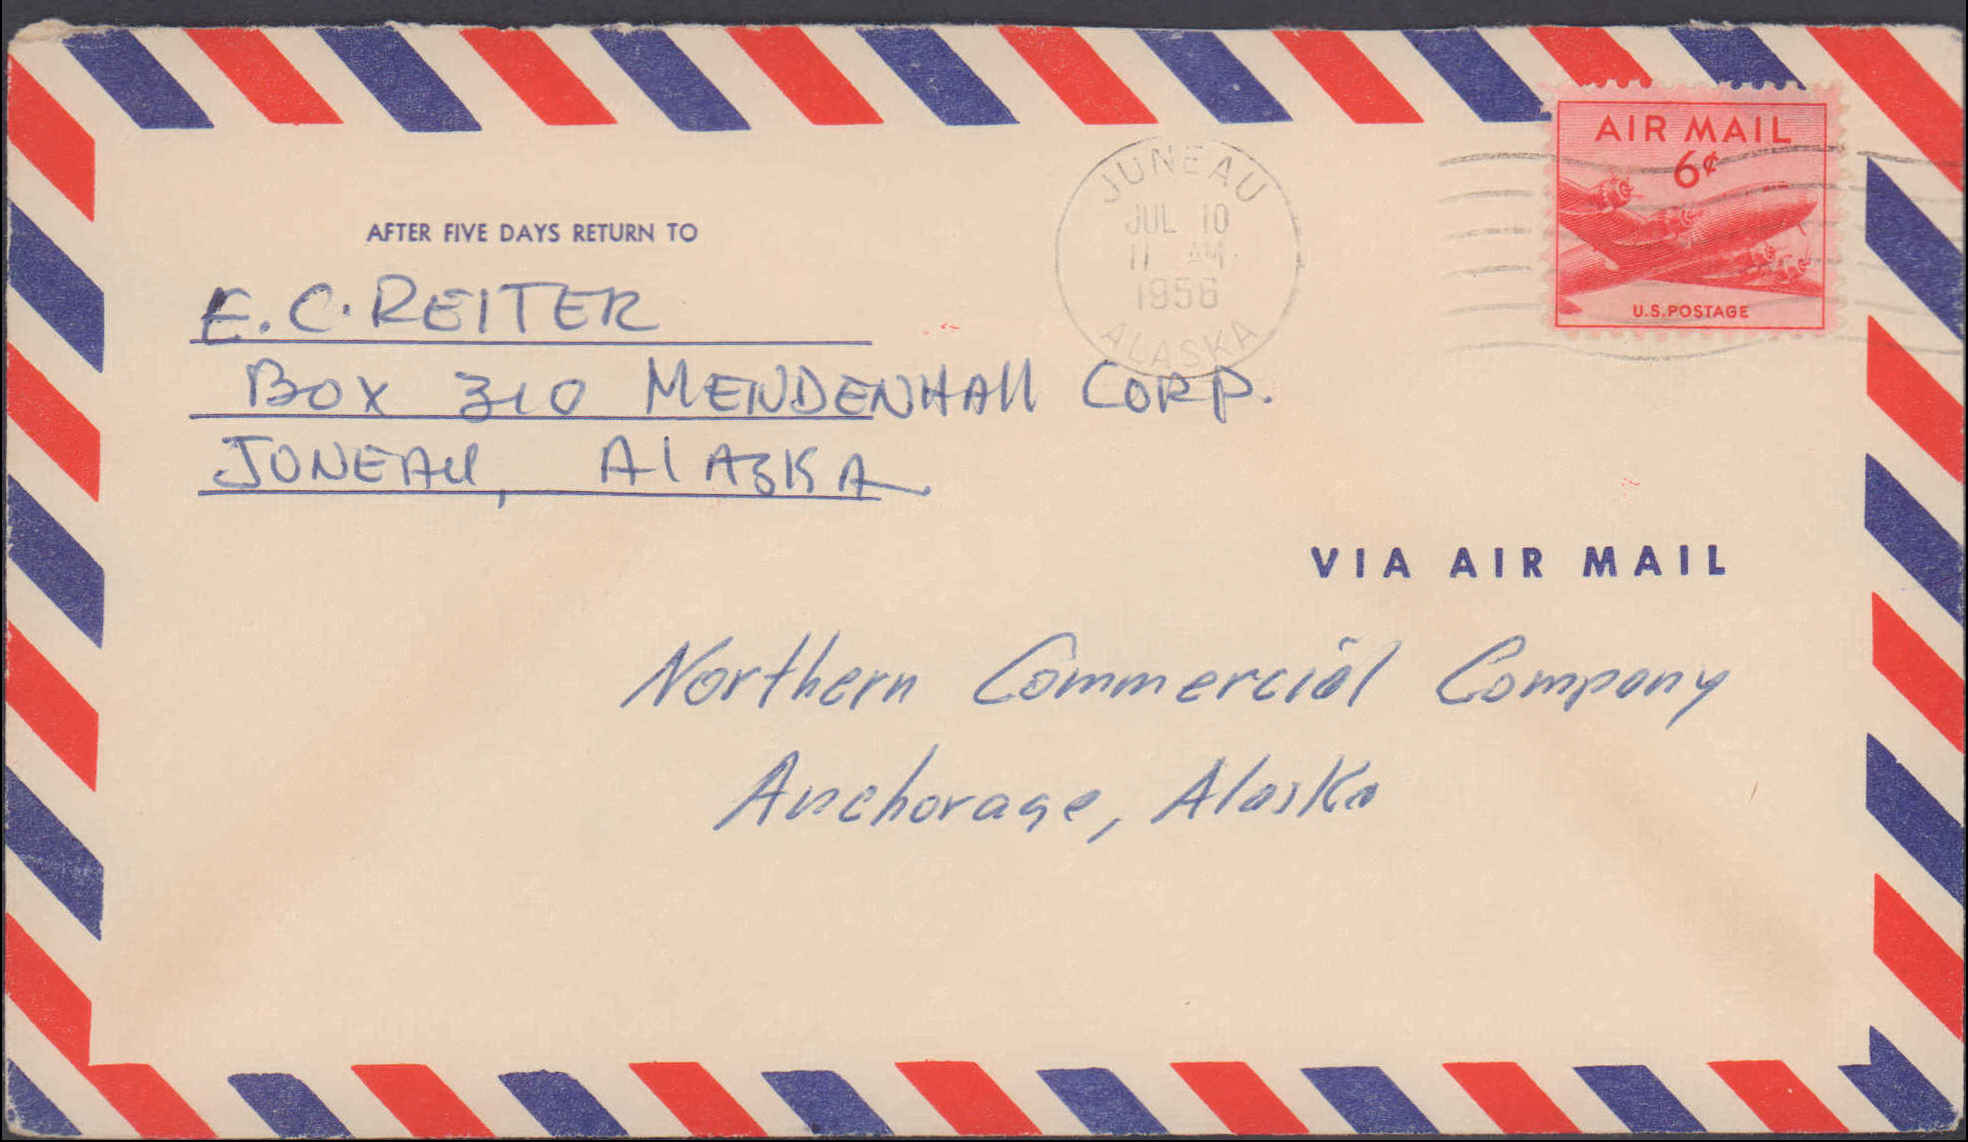 AFTER FIVE DAYS RETURN TO
E. C. REITER
BOX 310 MENDENHALL CORP.
JUNEAU, ALASKA
JUNEAU
JUL 10
11 AM
1956
ALASKA
AIR MAIL
6¢
U.S. POSTAGE
VIA AIR MAIL
Northern Commercial Company
Anchorage, Alaska